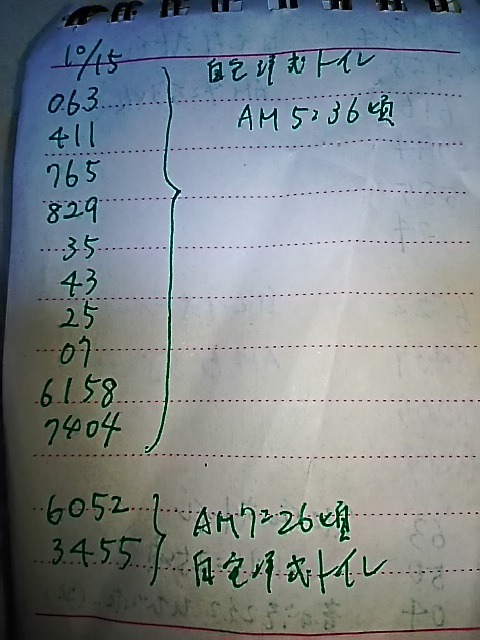 10/15
自宅洋式トイレ
063
AM 5:36頃
411
765
829
35
43
25
07
6158
7404
6052
AM7:26頃
3455
自宅洋式トイレ